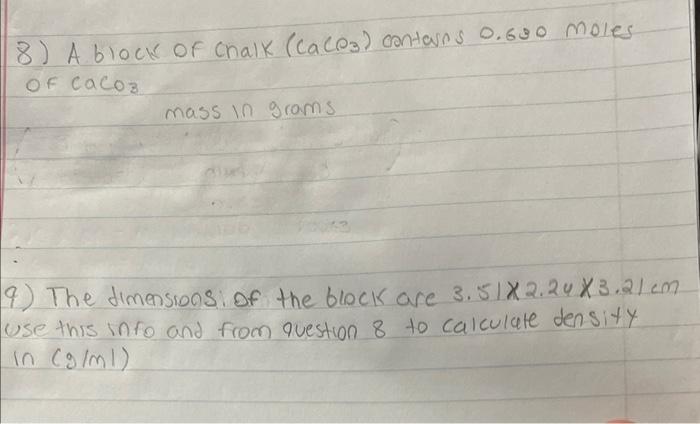 8) A block of chalk (CaCO3) contains 0.680 moles
of CaCO3
mass in grams
9) The dimensions of the block are 3.51X2.24X3.21cm
use this info and from question 8 to calculate density
in (g/ml)